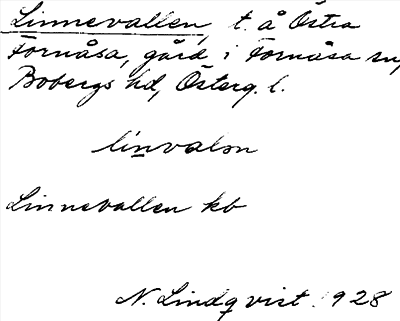 Linnevallen, t. å Östra
Fornåsa, gård i Fornåsa sn,
Bobergs hd, Österg. l.
linvalən
Linnevallen kb
N. Lindqvist 1928